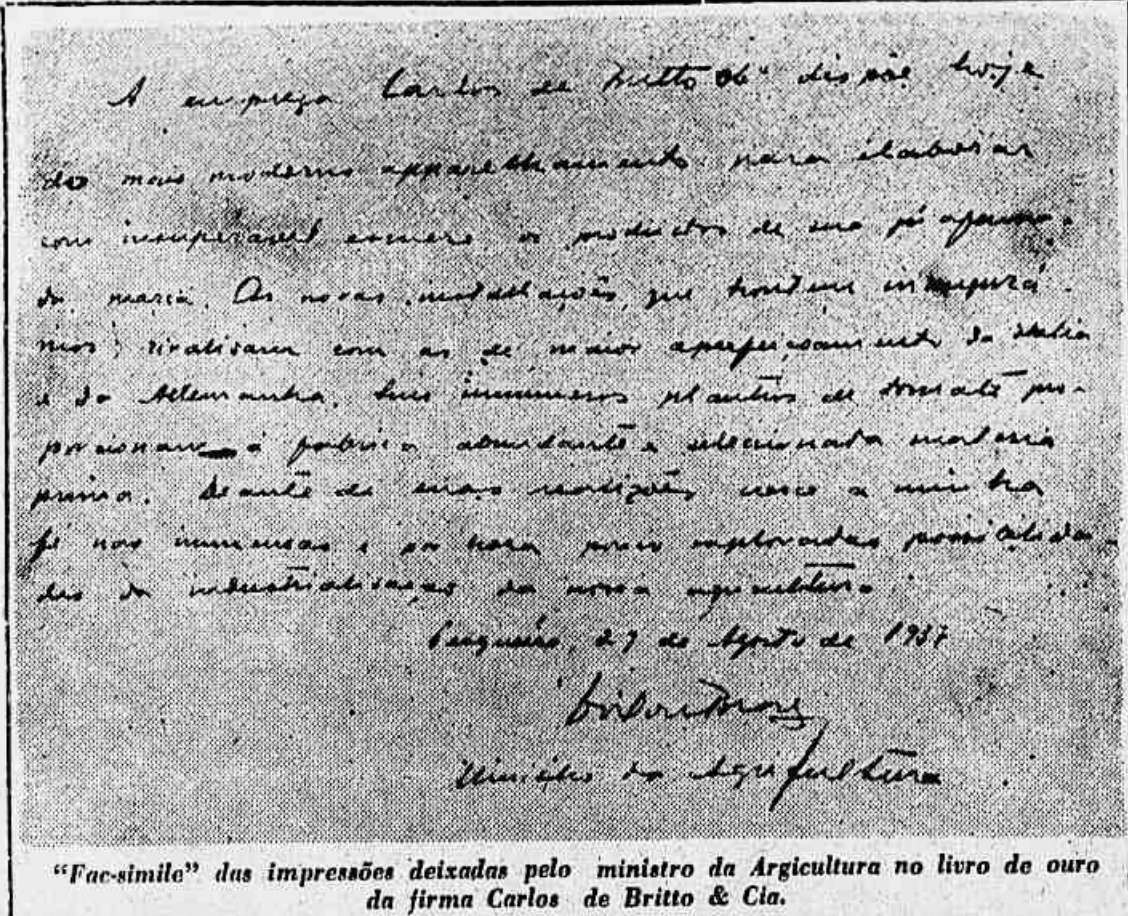 A empreza Carlos de Britto & Cª dispõe hoje
do mais moderno apparelhamento para elaborar
com insuperavel esmero os productos de sua já afama-
da marca. As novas installações, que hontem inaugurá-
mos, rivalisam com as de maior aperfeiçoamento da Italia
e da Allemanha. Seus innumeros plantios de tomate pro-
porcionam á fabrica abundante e seleccionada materia
prima. Deante de suas realizações cresce a minha
fé nas immensas e por hora pouco exploradas possibilida-
des da industrialisação da nossa agricultura.
Pesqueira, 27 de Agosto de 1937
Ministro da Agricultura
"Fac-simile" das impressões deixadas pelo ministro da Argicultura no livro de ouro
da firma Carlos de Britto & Cia.